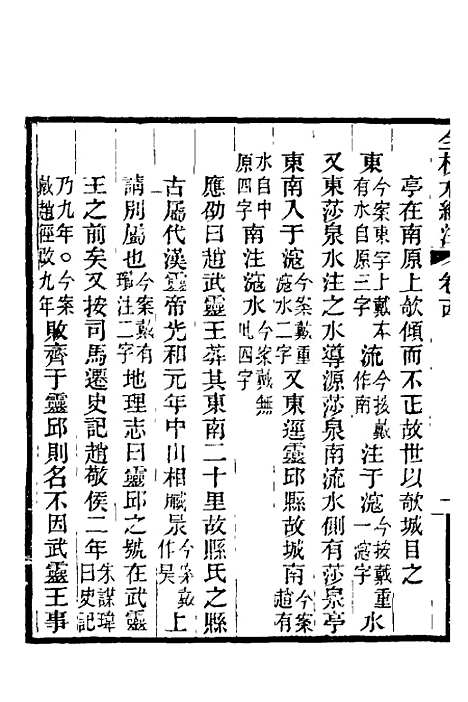 全校水經注 卷十一
亭在南原上欹傾而不正故世以欹城目之
東今案東字上戴本有水自原三字流今按戴作南注于滱今按戴重一滱字水
又東莎泉水注之水導源莎泉南流水側有莎泉亭
東南入于滱今案戴重滱水二字又東逕靈邱縣故城南今案趙有
水自中原四字南注滱水今案戴無此四字
應劭曰趙武靈王葬其東南二十里故縣氏之縣
古屬代漢靈帝光和元年中山相臧旻今案戴作昊上
請別屬也今案戴有瓚注二字地理志曰靈邱之號在武靈
王之前矣又按司馬遷史記趙敬侯二年朱謀㙔曰史記
乃九年○今案戴趙徑改九年敗齊于靈邱則名不因武靈王事